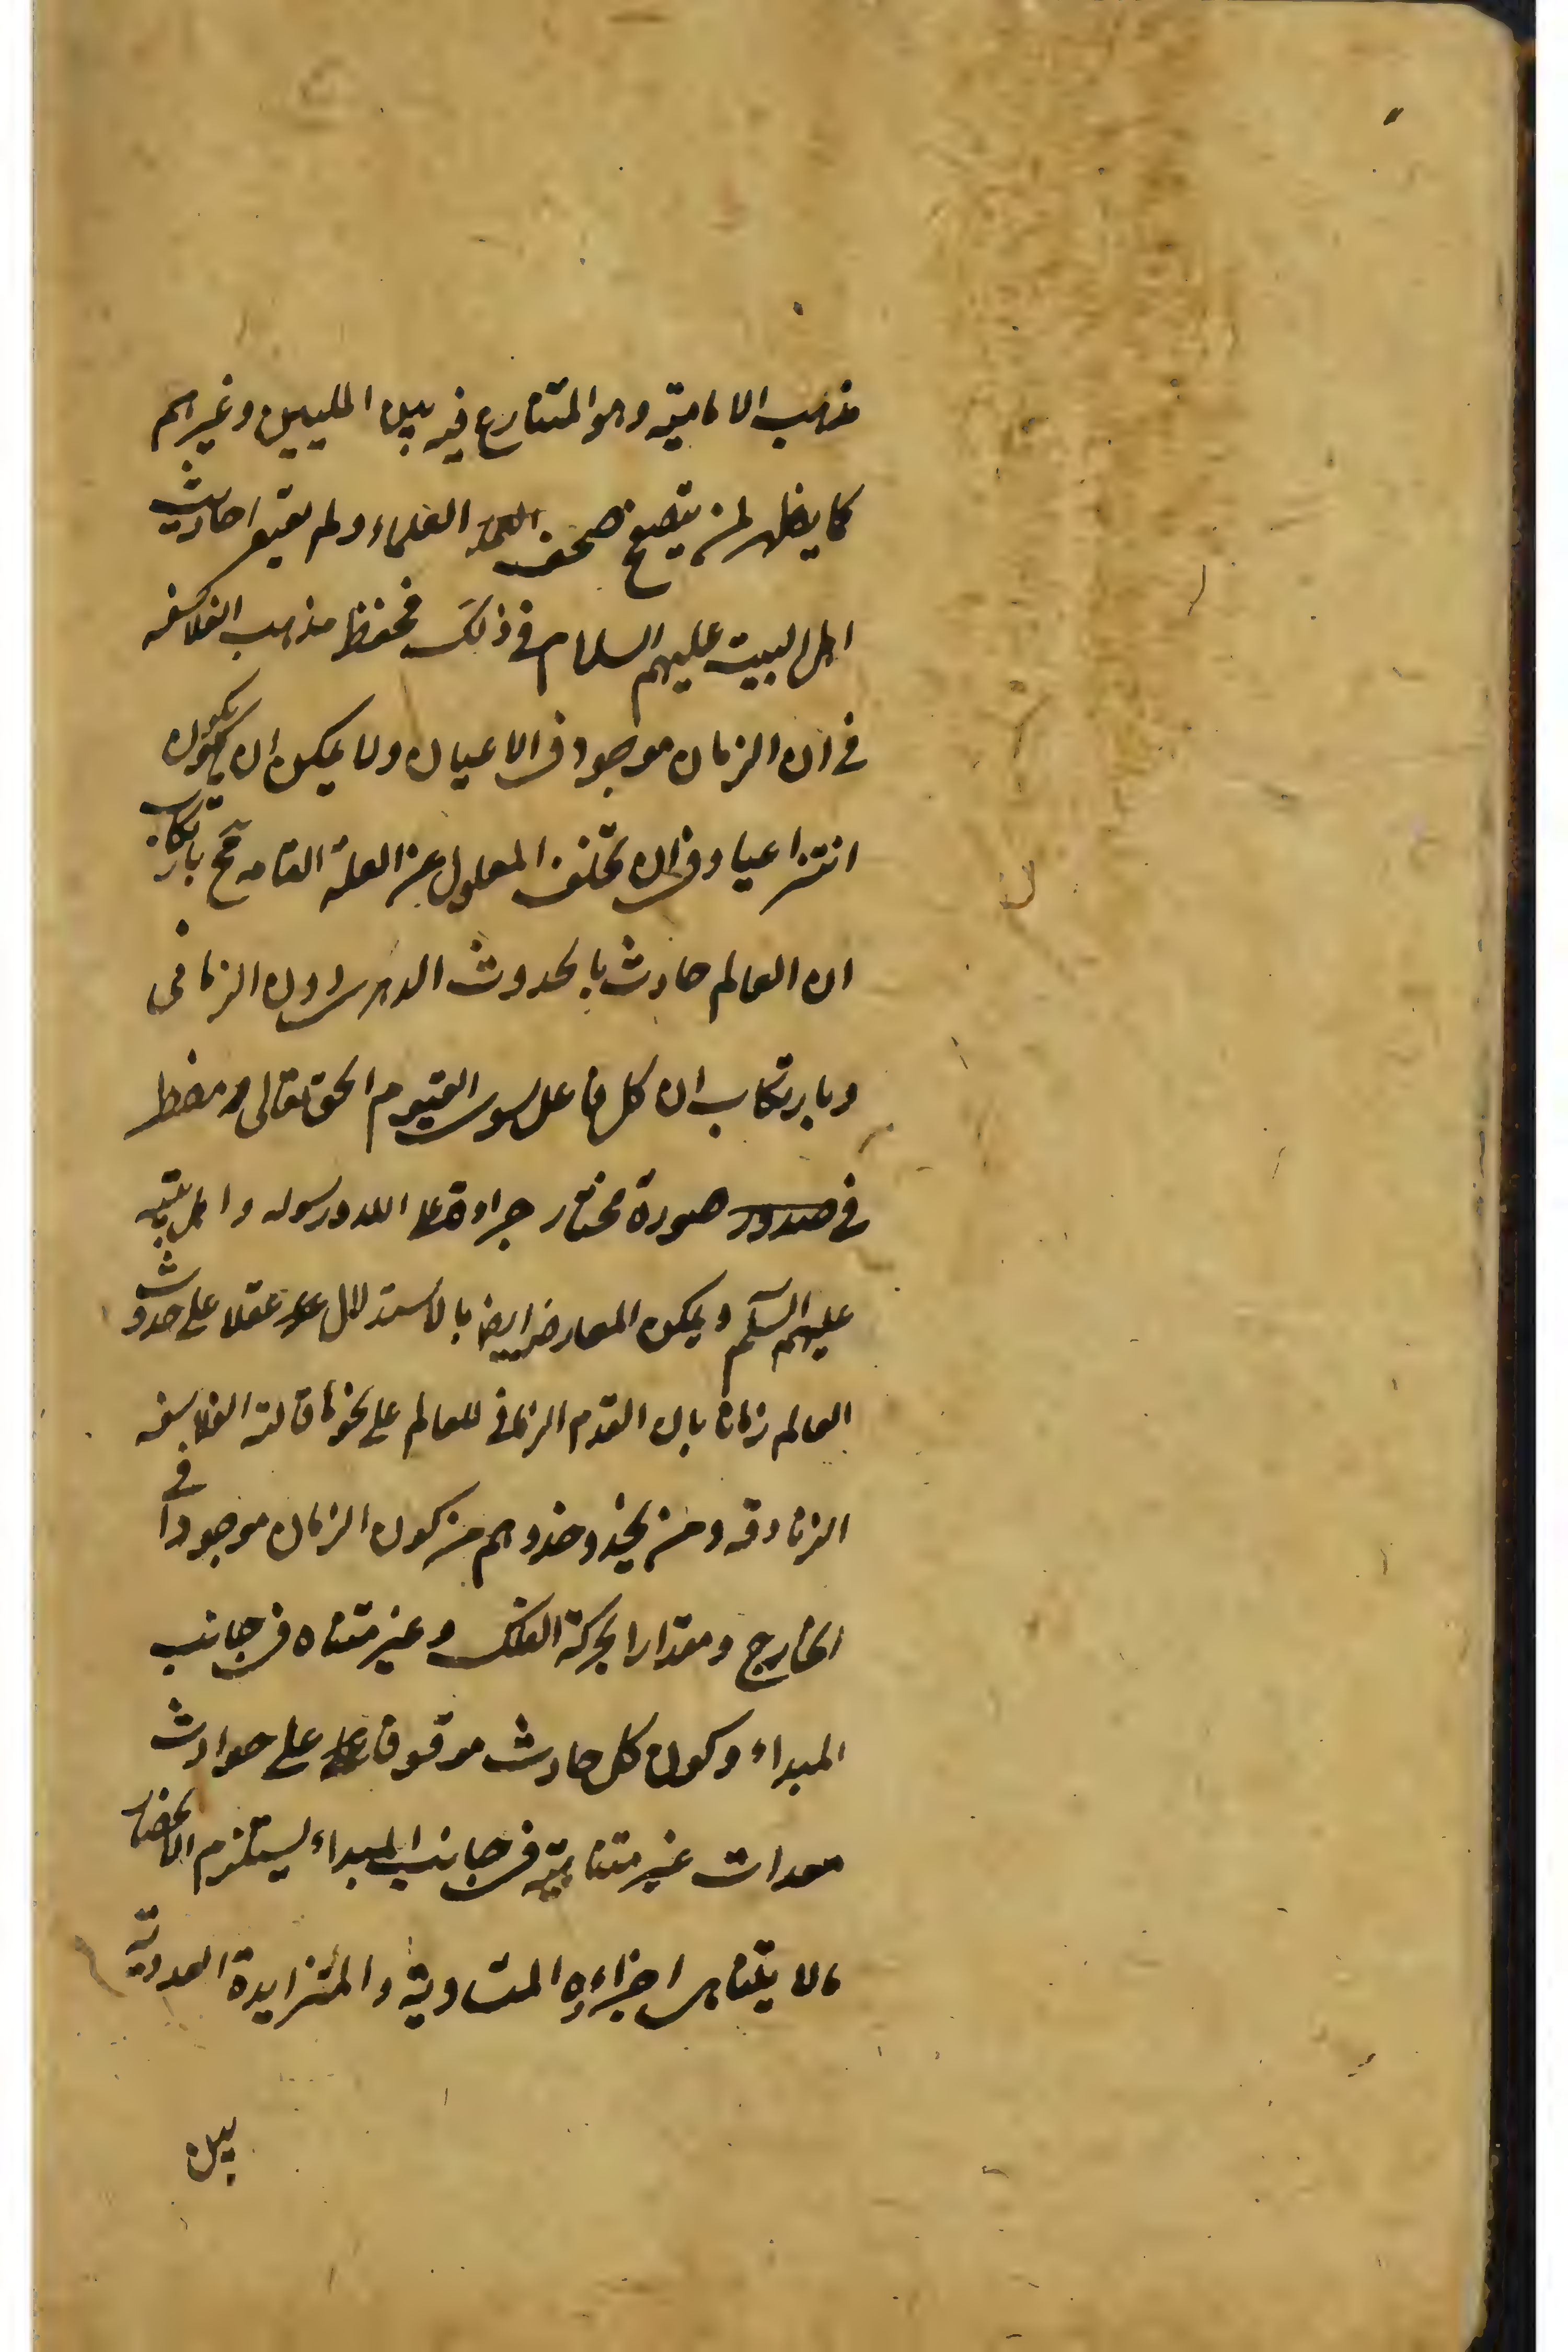 مذهب الامامية وهو المتنازع فيه بين المليين وغيرهم
كما يظهر لمن يتصفح صحف العلماء ولم يتبع احاديث
اهل البيت عليهم السلام في ذلك فحفظ مذهب الفلاسفه
في ان الزمان موجود في الاعيان ولا يمكن ان يكون
انتزاعيا وفي ان تخلف المعلول عن العلة التامه مح بارتكاب
ان العالم حادث بالحدوث الدهري دون الزماني
وبارتكاب ان كل فاعل سوى القيوم الحق تعالى مضطر
في صورة مختار جراءة على الله ورسوله واهل بيته
عليهم السلم ويمكن المعارضة ايضا بالاستدلال عقلا على حدوث
العالم زمانا بان القدم الزماني للعالم على نحو ما قالته الفلاسفه
الزنادقه ومن يحذو حذوهم من كون الزمان موجودا في
الخارج ومقدارا لحركة الفلك وغير متناه في جانب
المبداء وكون كل حادث موقوفا على حوادث
معدات غير متناهية في جانب المبداء يستلزم انحصار
ما لا يتناهى اجزاءه المتساوية والمتزايدة العددية
بين